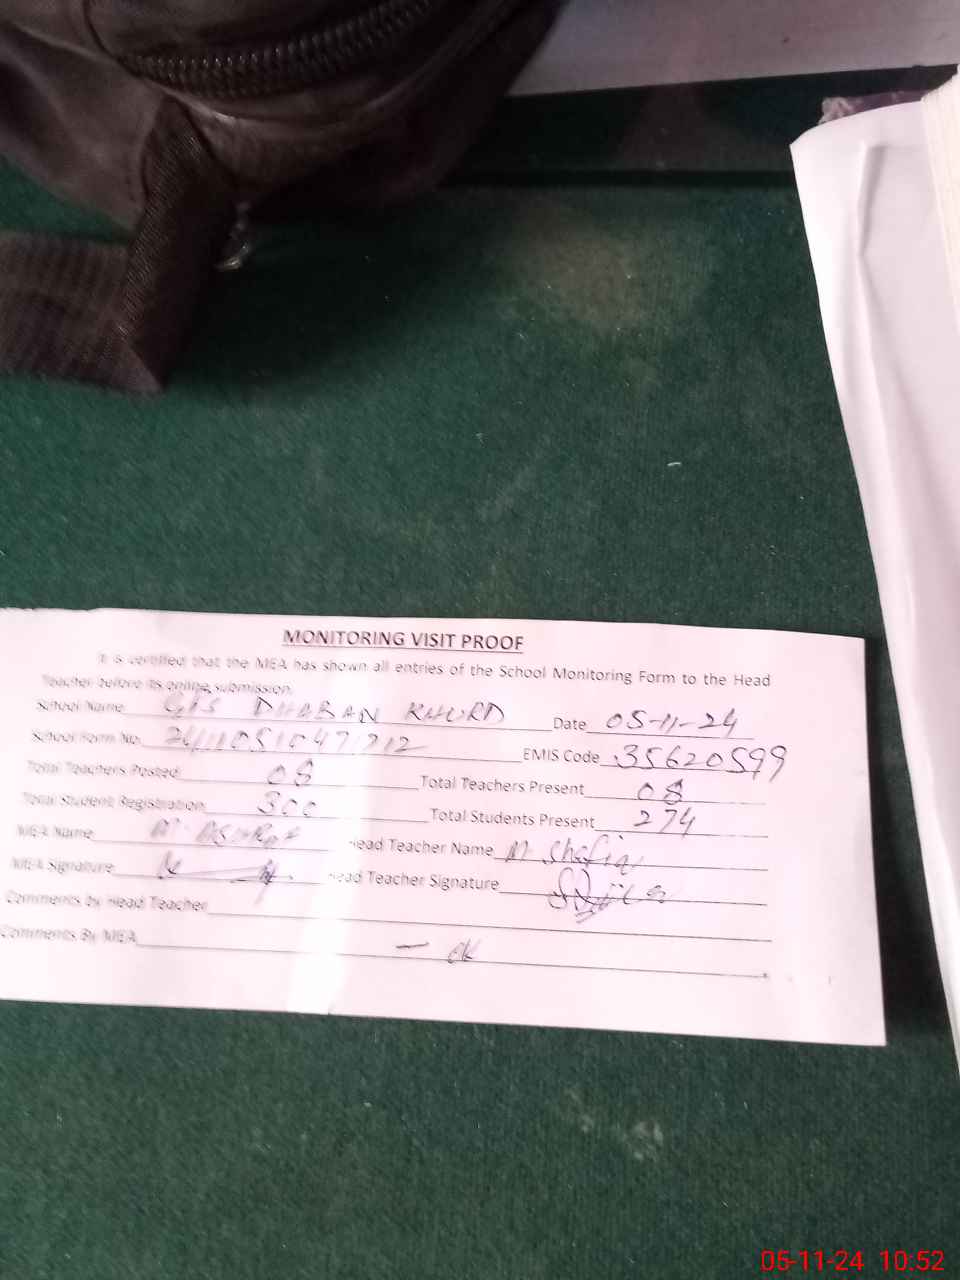 MONITORING VISIT PROOF
It is certified that the MEA has shown all entries of the School Monitoring Form to the Head
Teacher before its online submission.
School Name DHABAN KHURD Date 05-11-24
School Form No. EMIS Code 35620599
Total Teachers Posted 08 Total Teachers Present 08
Total Student Registration 300 Total Students Present 274
MEA Name M. ASHRAF Head Teacher Name M Shafiq
MEA Signature Head Teacher Signature
Comments by Head Teacher
Comments By MEA — ok
05-11-24 10:52